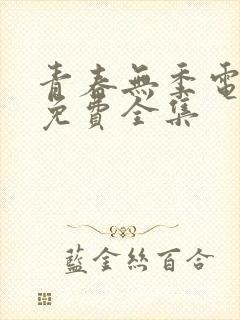 青春無季電
免費全集
藍金絲百合